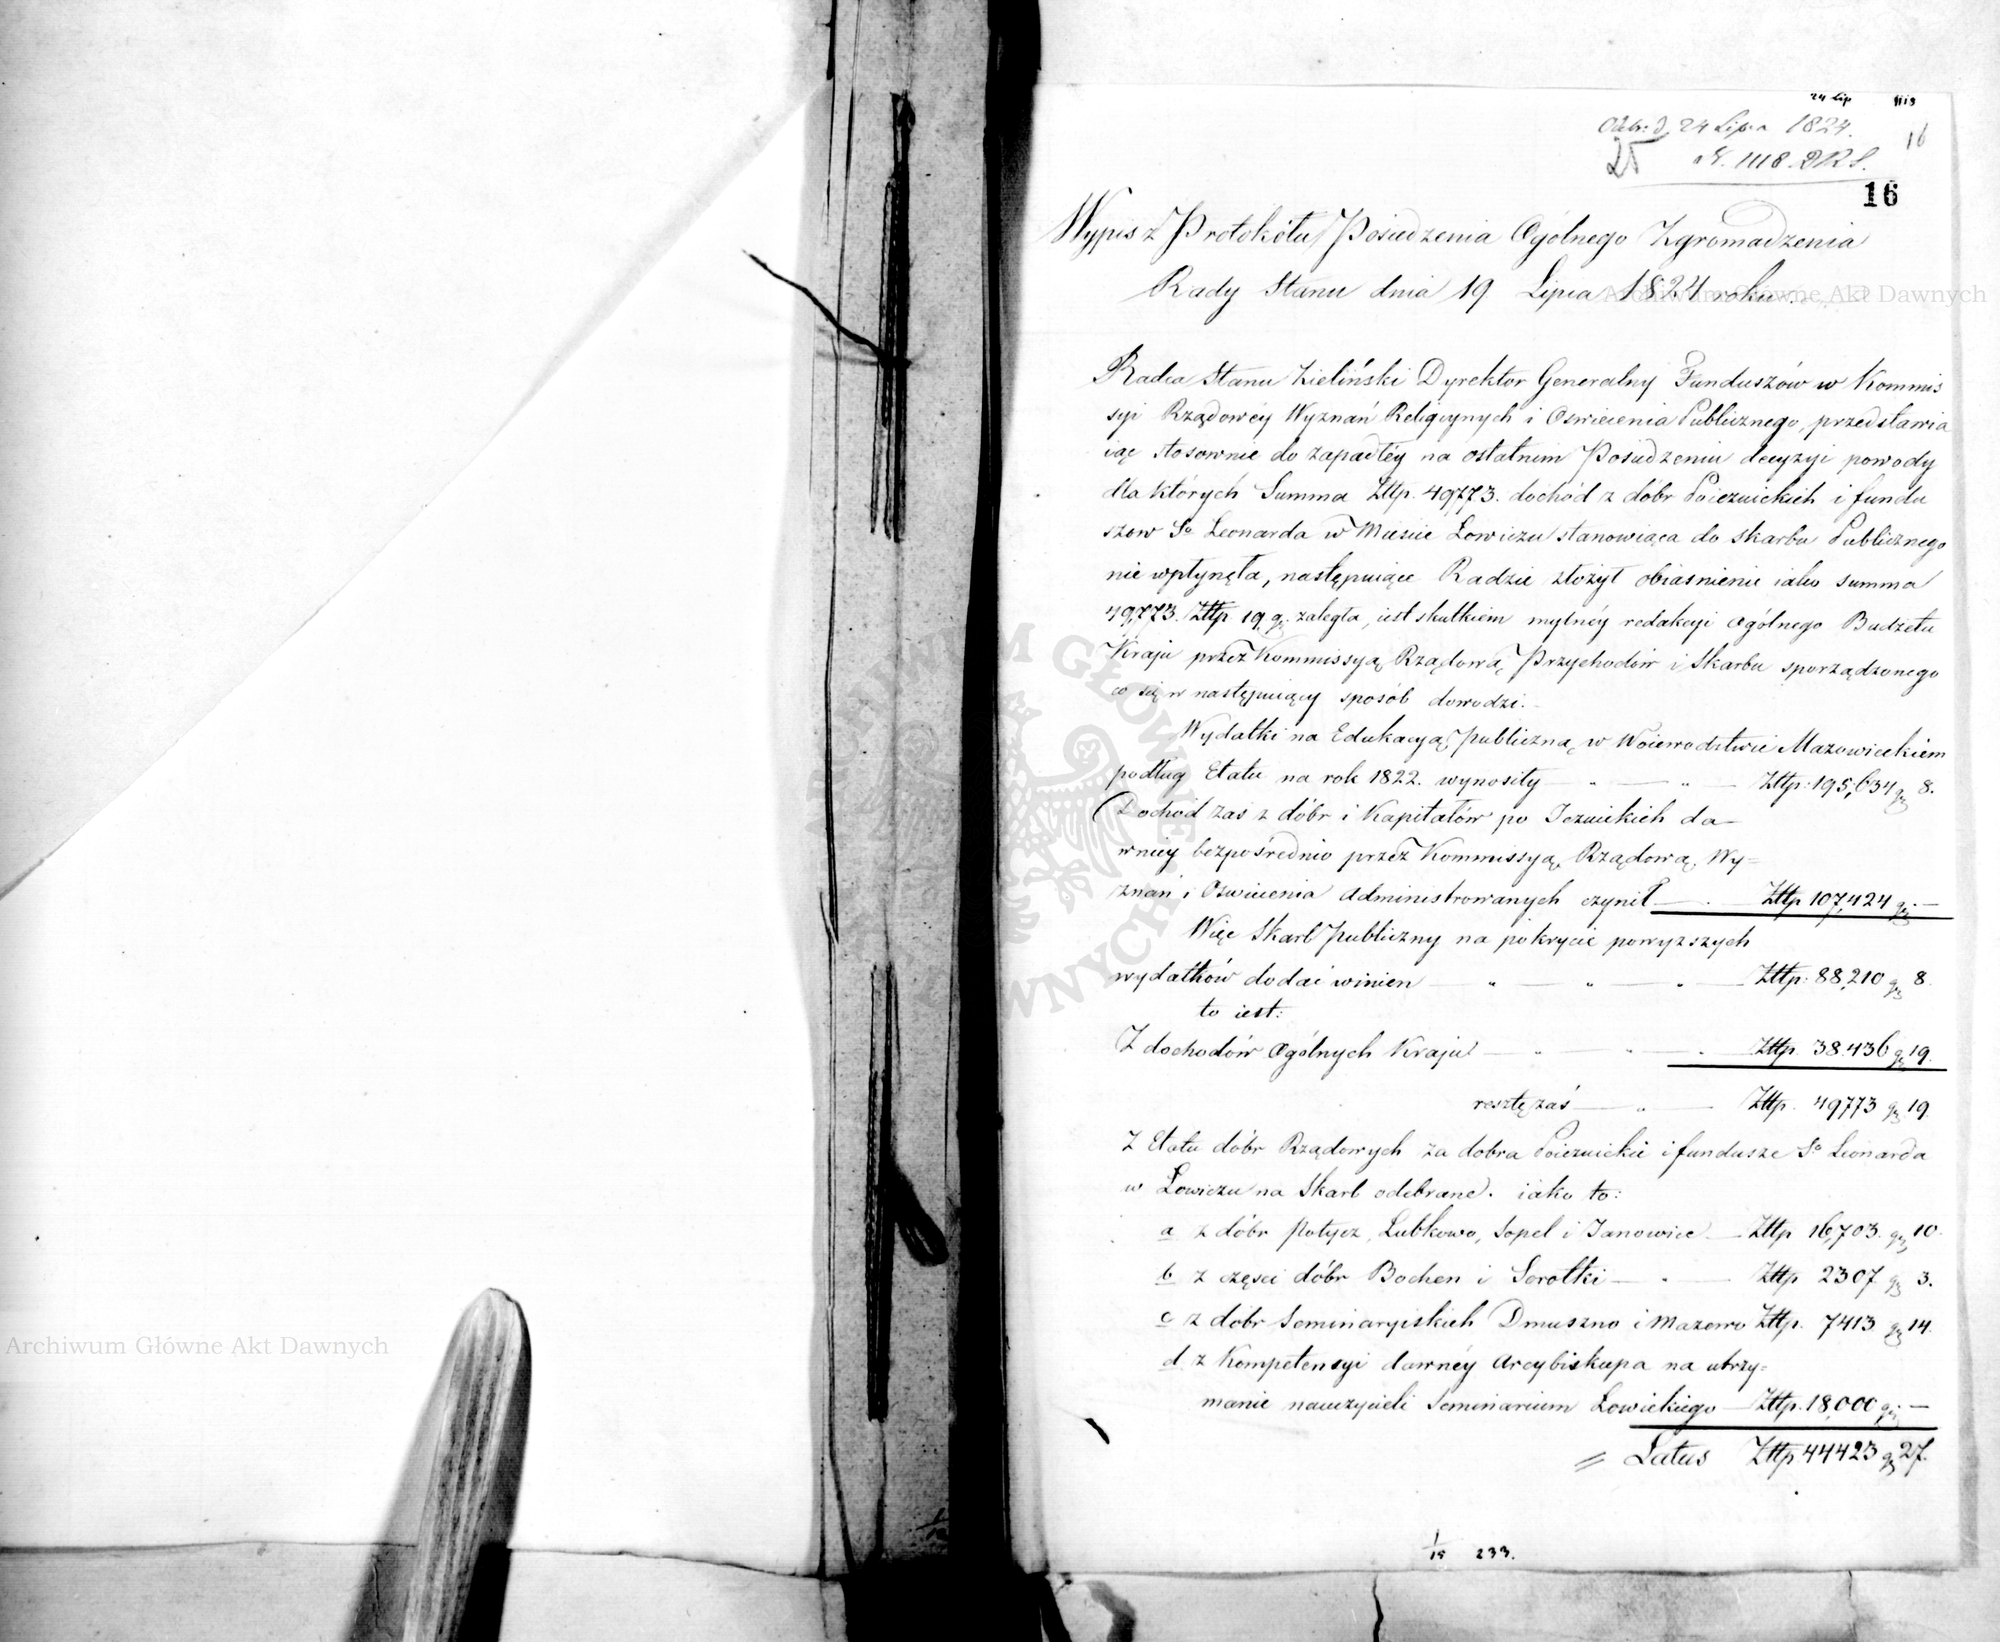 24 Lip 1118
Odebr: d. 24 Lipca 1824. 16
N. 1118. D.R.S.
16
Wypis z Protokółu Posiedzenia Ogólnego Zgromadzenia
Rady Stanu dnia 19 Lipca 1824 roku.
Radca Stanu Zieliński Dyrektor Generalny Funduszów w Kommis
syi Rządowéy Wyznań Religiynych i Oświecenia Publicznego, przedstawia
iąc stosownie do zapadłéy na ostatnim Posiedzeniu decyzyi powody
dla których Summa Złłp. 49773. dochód z dóbr Poiezuickich i fundu
szow So Leonarda w Mieście Łowiczu stanowiąca do skarbu Publicznego
nie wpłynęła, następuiące Radzie złożył obiaśnienie iako summa
49,773. Złłp 19. gr. zaległa, iest skutkiem mylnéy redakcyi ogólnego Budżetu
Kraju przez Kommissyą Rządową Przychodów i Skarbu sporządzonego
co się w następuiący sposób dowodzi.
Wydatki na Edukacyą publiczną w Woiewodztwie Mazowieckiem
podług Etatu na rok 1822. wynosiły Złłp: 195,634 gr 8.
Dochód zaś z dóbr i Kapitałów po Jezuickich da-
wniey bezpośrednio przez Kommissyą Rządową Wy=
znań i Oświecenia administrowanych czynił Złłp 107,424 gr. —
Więc Skarb publiczny na pokrycie powyższych
wydatków dodać winien Złłp: 88,210 gr 8.
to iest:
Z dochodów Ogólnych Kraju Złłp. 38.436 gr 19.
resztę zaś Złłp. 49773 gr. 19.
Z Etatu dóbr Rządowych za dobra Poiezuickie i fundusze So Leonarda
w Łowiczu na Skarb odebrane. iako to:
a z dóbr Potycz, Lubkowo, Sopel i Janowice Złłp 16,703. gr 10.
b z części dóbr Bochen i Sorotki Złłp 2307 gr 3.
c z dóbr Seminaryiskich Dmuszno i Mazewo Złłp. 7413 gr 14.
d z Kompetensyi dawnéy Arcybiskupa na utrzy=
manie nauczycieli Seminarium Łowickiego Złłp. 18,000 gr. —
Latus Złłp 44423 gr 27.
1/15 233.
Archiwum Główne Akt Dawnych
Archiwum Główne Akt Dawnych